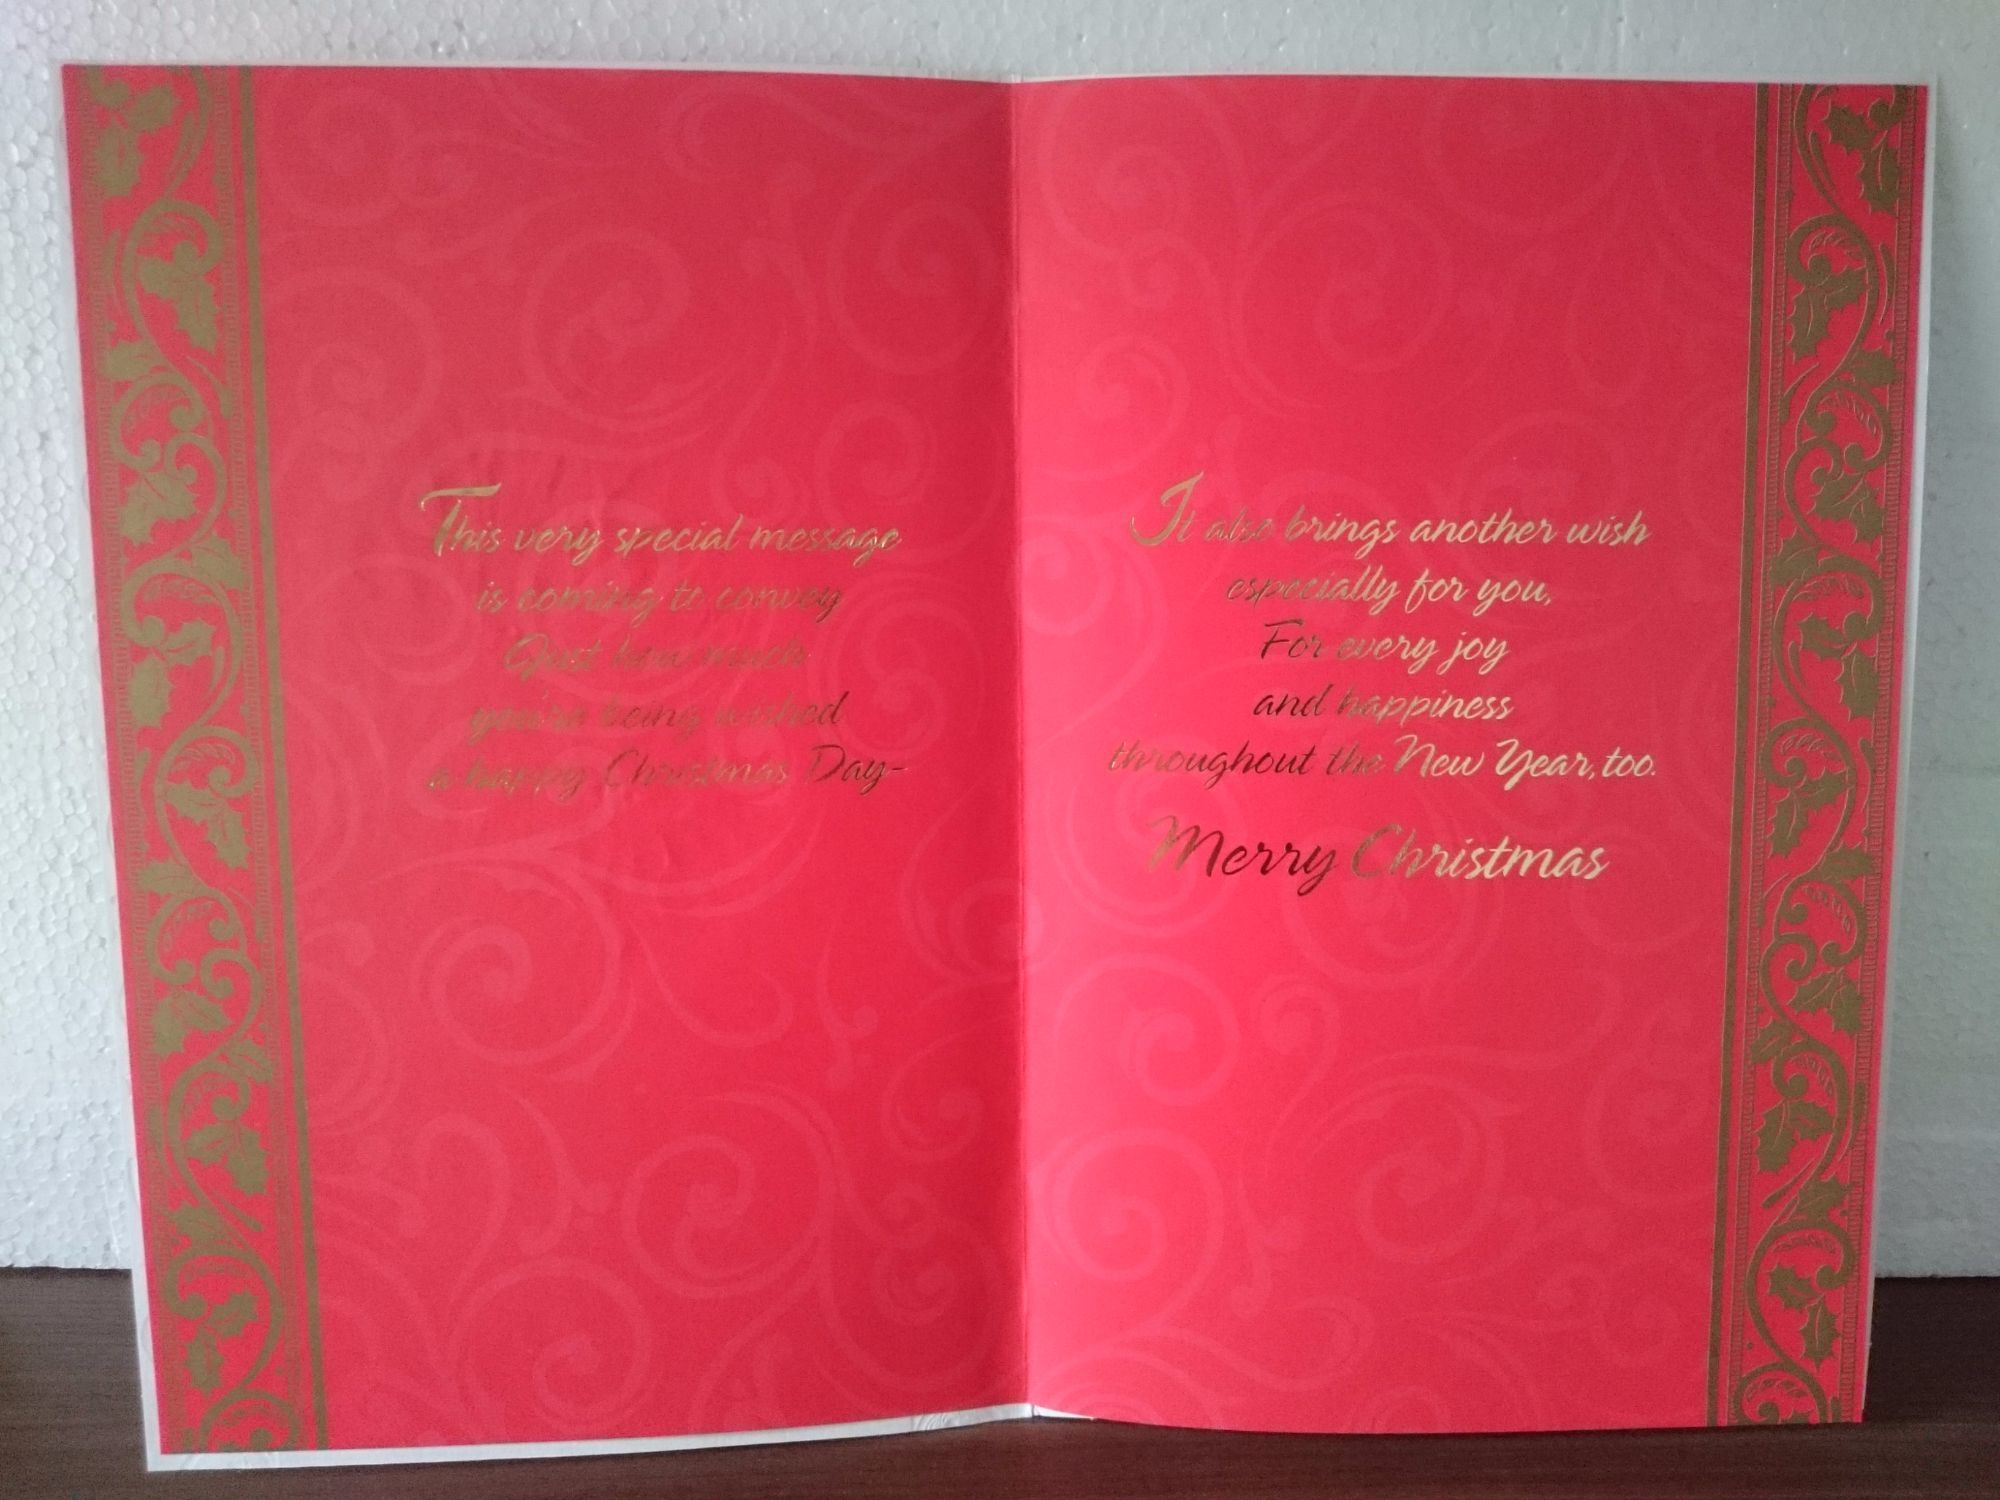 This very special message
is coming to convey
Just how much
you're being wished
a happy Christmas Day-
It also brings another wish
especially for you,
For every joy
and happiness
throughout the New Year, too.
Merry Christmas